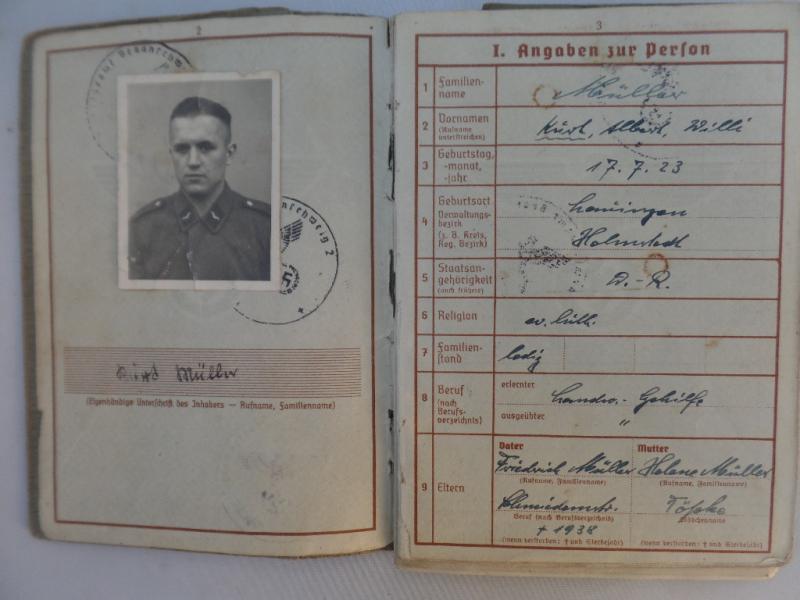 2
Kurt Müller
(Eigenhändige Unterschrift des Inhabers — Rufname, Familienname)
3
I. Angaben zur Person
1 Familien-
name
Müller
2 Vornamen
(Rufname
unterstreichen)
Kurt, Albert, Willi
3 Geburtstag,
-monat,
-jahr
17. 7. 23
4 Geburtsort
Verwaltungs-
bezirk
(z. B. Kreis,
Reg. Bezirk)
Helmstedt
5 Staatsan-
gehörigkeit
(auch frühere)
D.-R.
6 Religion
ev. luth.
7 Familien-
stand
ledig
8 Beruf
(nach
Berufs-
verzeichnis)
erlernter
landw.- Gehilfe
ausgeübter
"
9 Eltern
Vater
Friedrich Müller
(Rufname, Familienname)
Schmiedemstr.
Beruf (nach Berufsverzeichnis)
† 1938
(wenn verstorben: † und Sterbejahr)
Mutter
Helene Müller
(Rufname, Familienname)
Mädchenname
(wenn verstorben: † und Sterbejahr)